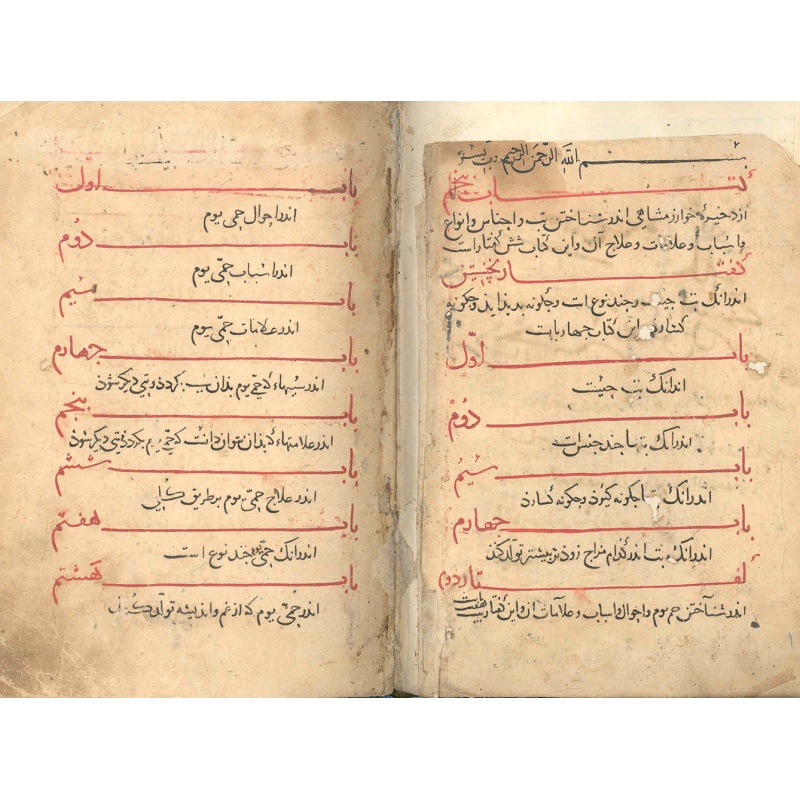 بسم الله الرحمن الرحیم
کتاب پنجم
از ذخیره خوارزمشاهی اندر شناختن تب و اجناس و انواع
و اسباب و علامات و علاج آن و این کتاب شش گفتار است
گفتار نخستین
اندر انک تب چیست و چند نوع است و چگونه پدید اید و چگونه
کسارد این کتاب چهار بابست
باب اول
اندر انک تب چیست
باب دوم
اندر انک تبها چند جنس است
باب سیم
اندر انک تبها چگونه گیرد و چگونه کسارد
باب چهارم
اندر انک تب اندر کدام مزاج زودتر و بیشتر تولد کند
گفتار دوم
اندر شناختن حمی یوم و احوال و اسباب و علامات آن و این گفتار بیست
باب اول
اندر احوال حمی یوم
باب دوم
اندر اسباب حمی یوم
باب سیم
اندر علامات حمی یوم
باب چهارم
اندر سببهاء که حمی یوم بدان سبب بگردد و تبی دیگر شود
باب پنجم
اندر علامتهاء که بدان بتوان دانست که حمی یوم بگردد و تبی دیگر شود
باب ششم
اندر علاج حمی یوم بر طریق کلی
باب هفتم
اندر انک حمی یوم چند نوع است
باب هشتم
اندر حمی یوم که از غم و اندیشه تولد کند